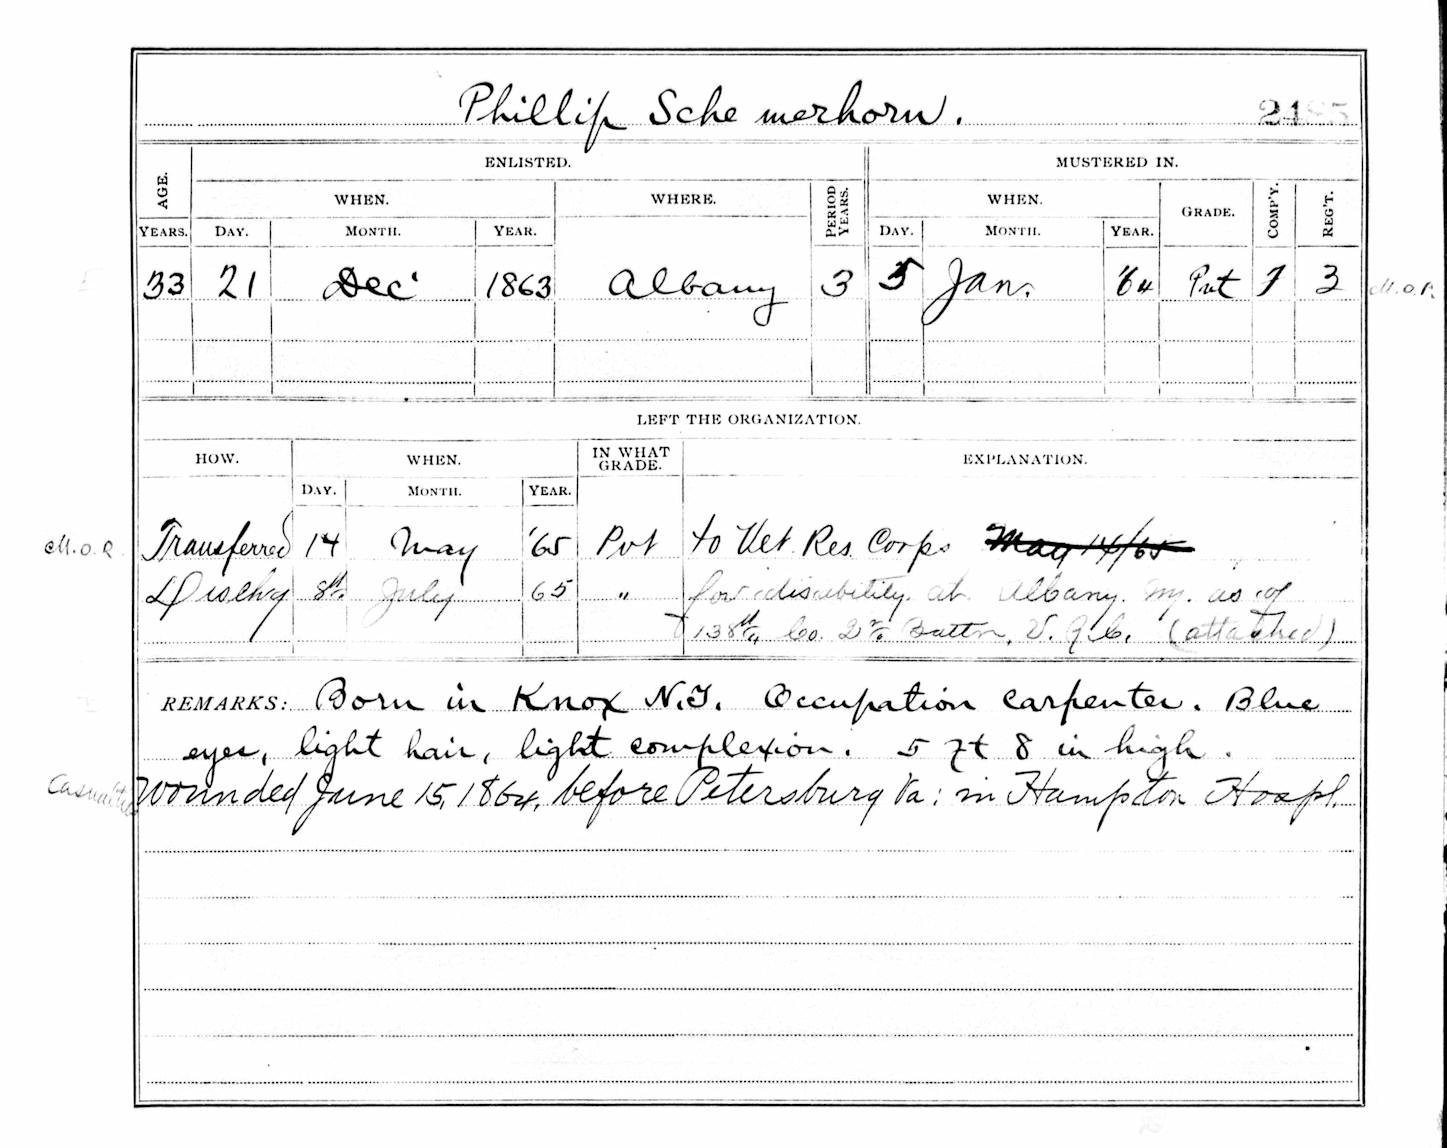 Phillip Schemerhorn. 2485
ENLISTED. MUSTERED IN.
AGE. WHEN. WHERE. PERIOD YEARS. WHEN. GRADE. COMP'Y. REG'T.
YEARS. DAY. MONTH. YEAR. DAY. MONTH. YEAR.
33 21 Dec' 1863 Albany 3 5 Jan. '64 Pvt 3 M.O.R.
LEFT THE ORGANIZATION.
HOW. WHEN. IN WHAT GRADE. EXPLANATION.
DAY. MONTH. YEAR.
M.O.R. Transferred 14 May '65 Pvt to Vet. Res. Corps May 14/65
Dischg 8th July 65 " for disability at Albany. Ny. as of
138th Co. 2nd Battn. V.R.C. (attached)
REMARKS: Born in Knox N.Y. Occupation carpenter. Blue
eyes, light hair, light complexion. 5 ft 8 in high.
Casualties wounded June 15, 1864, before Petersburg Va: in Hampton Hospl.